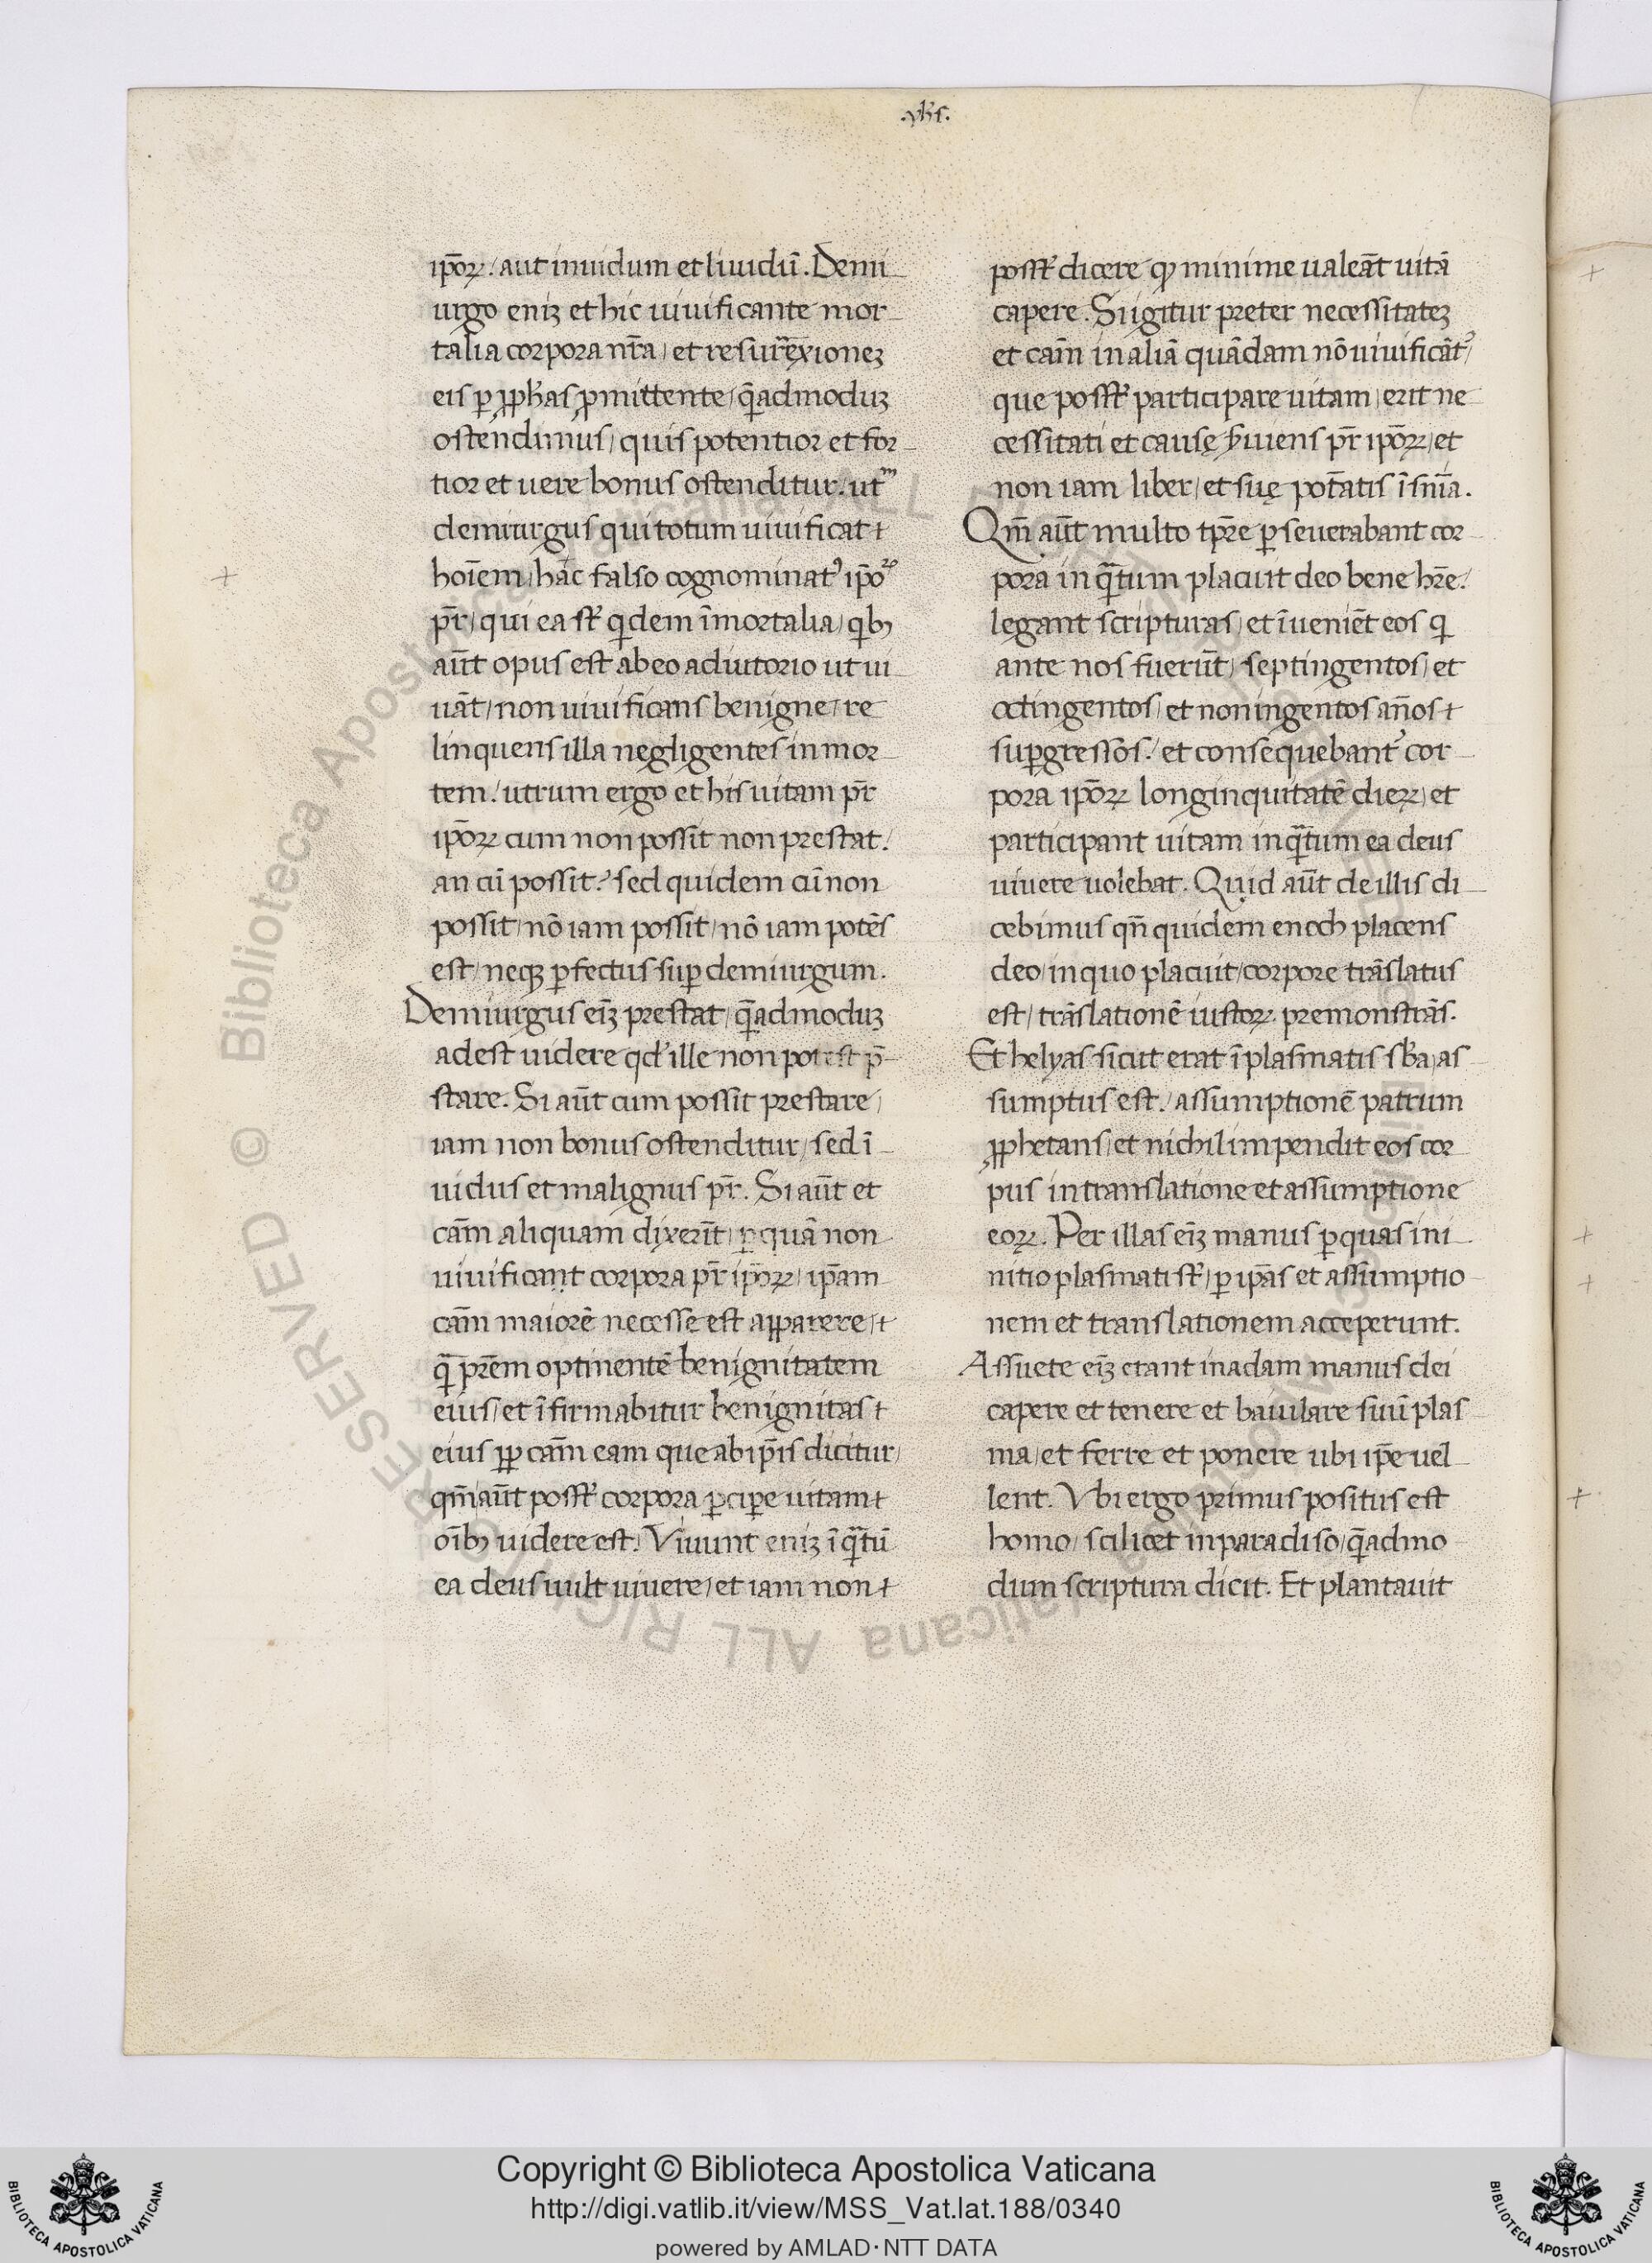 .yhs.
ip̄oꝝ / aut inuidum et liuidū. Demi
urgo eniꝫ et hic uiuificante mor
talia corpora nr̄a / et resurrexioneꝫ
eis ꝑ ꝓph̄as ꝓmittente / quēadmoduꝫ
ostendimus / quis potentior et for
tior et uere bonus ostenditur / utrᵐ
demiurgus qui totum uiuificat
hoīem / hāc falso cognominatꝰ ip̄oꝝ
pr̄ / qui ea st̄ qidem īmortalia / qibꝫ
aūt opus est ab eo adiutorio ut ui
uāt / non uiuificans benigne / re
linquens illa negligentes in mor
tem / utrum ergo et his uitam pr̄
ip̄oꝝ cum non possit non prestat /
an cū possit? sed quidem cū non
possit / nō iam possit / nō iam potēs
est / neqꝫ ꝑfectus suꝑ demiurgum.
Demiurgus eīꝫ prestat / quēadmoduꝫ
adest uidere qd' ille non potest p̄
stare. Si aūt cum possit prestare /
iam non bonus ostenditur / sed ī
uidus et malignus pr̄. Si aūt et
cām aliquam dixerīt / ꝑ quā non
uiuificant corpora pr̄ ip̄oꝝ / ip̄am
cām maiorē necesse est apparere /
q̄ prēm optinentē benignitatem
eius / et īfirmabitur benignitas
eius ꝓp cām eam que ab ip̄is dicitur /
qm̄ aūt posst̄ corpora ꝑciꝑe uitam
oībꝫ uidere est. Viuunt eniꝫ ī qᵃtū
ea deus uult uiuere / et iam non
posst̄ dicere ꝙ minime ualeāt uitā
capere. Si igitur preter necessitateꝫ
et cām in aliā quādam nō uiuificātꝰ /
que posst̄ participare uitam / erit ne
cessitati et causę ẜuiens pr̄ ip̄oꝝ / et
non iam liber / et suę potātis ī snīa.
Qm̄ aūt multo tp̄re ꝑseuerabant cor
pora in qᵃtum placuit deo bene hr̄e /
legant scripturas / et īueniēt eos qi
ante nos fuerūt / septingentos / et
octingentos / et noningentos an̄os
suꝑgressōs / et consequebantꝰ cor
pora ip̄oꝝ longinquitatē dieꝝ / et
participant uitam in qᵃtum ea deus
uiuere uolebat. Quid aūt de illis di
cebimus qn̄ quidem enoch placens
deo / in quo placuit / corpore trāslatus
est / trāslationē iustoꝝ premonstrās.
Et helyas sicut erat ī plasmatis sb̄a / as
sumptus est / assumptionē patrum
ꝓphetans / et nichil impendit eos cor
pus in translatione et assumptione
eoꝝ. Per illas eīꝫ manus ꝑ quas in i
nitio plasmati st̄ / ꝑ ip̄as et assumptio
nem et translationem acceperunt.
Assuete eīꝫ erant in adam manus dei
capere et tenere et baiulare suū plas
ma / et ferre et ponere ubi ip̄e uel
lent. Vbi ergo primus positus est
homo / scilicet in paradiso / quēadmo
dum scriptum dicit. Et plantauit
© Biblioteca Apostolica Vaticana ALL RIGHTS RESERVED
Copyright © Biblioteca Apostolica Vaticana
http://digi.vatlib.it/view/MSS_Vat.lat.188/0340
powered by AMLAD·NTT DATA
BIBLIOTECA APOSTOLICA VATICANA
BIBLIOTECA APOSTOLICA VATICANA